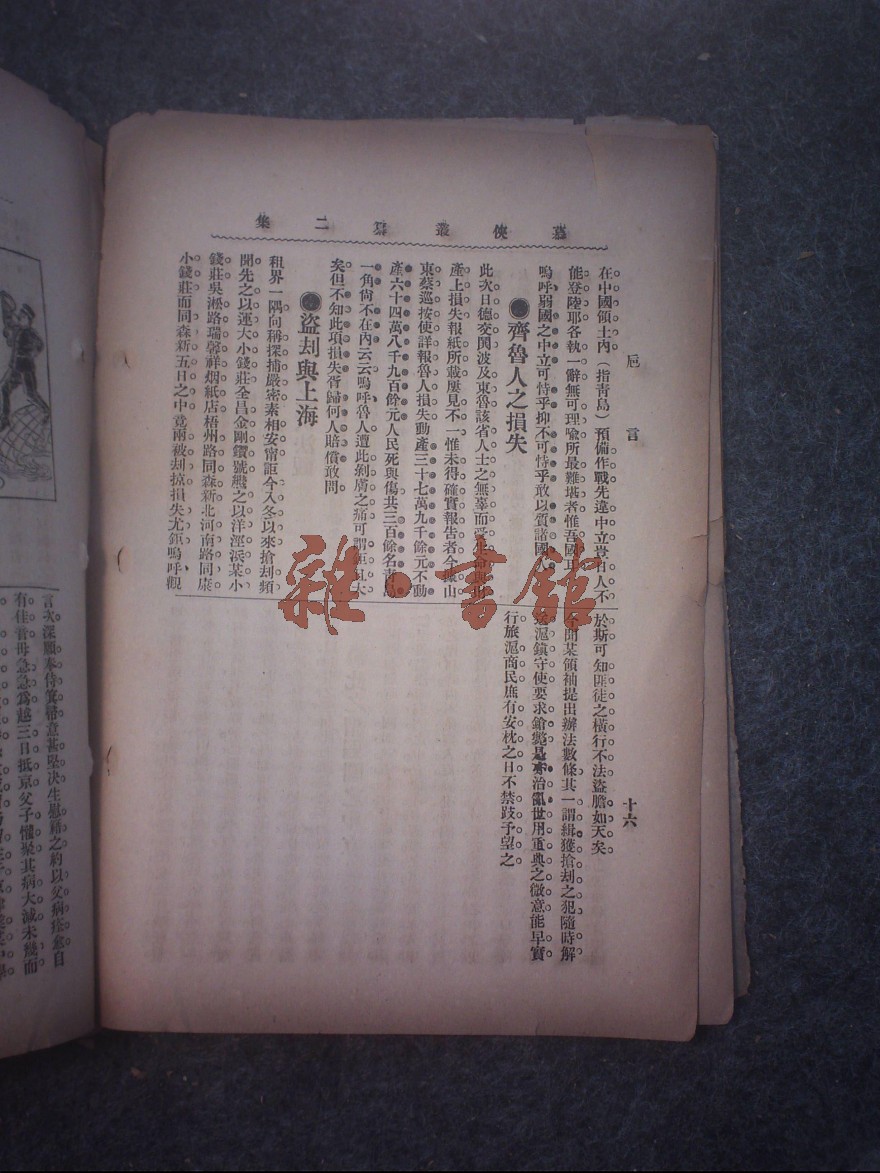 慕俠叢纂二集
巵言
十六
在中國領土內（指靑島）預備作戰先違中立豈日人不
能登陸耶各執一辭無可理喩所最難堪者惟吾國耳
嗚呼弱國之中立可恃乎抑不可恃乎敢以質諸國人
●齊魯人之損失
此次日德交鬨波及東魯該省人士之無辜而受生命與財
產上損失報紙所載屢見不一惟未得確實報告者今據山
東蔡巡按使詳報魯人損失動產三十七萬九千餘元不動
產六十四萬八千九百餘元人民死與傷共三百餘名靑島
一角尙不在內云云嗚呼魯人遭此剝膚之痛可謂鉅且大
矣但不知此項損失胥歸何人賠償敢問
●盜刦與上海
租界一隅向稱探捕嚴密素相安甯詎今入冬以來搶刦頻
聞先之以運大小錢莊全昌金剛鑽號繼之以洋涇浜某小
錢莊吳淞路瑞馨祥烟紙店梧州路同森新北河南路同康
小錢莊而同森新五日之中竟兩被刦掠損失尤鉅嗚呼觀
於斯可知匪徒之橫行不法盜膽如天矣
今聞某領袖提出辦法數條其一謂緝獲搶刦之犯隨時解
送滬鎭守使要求鎗斃是亦治亂世用重典之微意能早實
行旅滬商民庶有安枕之日不禁跂予望之
言次深願奉侍箕帚意甚堅决生慰藉之約以父病痊愈自
有佳音毋急急爲越三日抵京父子懽聚其病大減未幾而